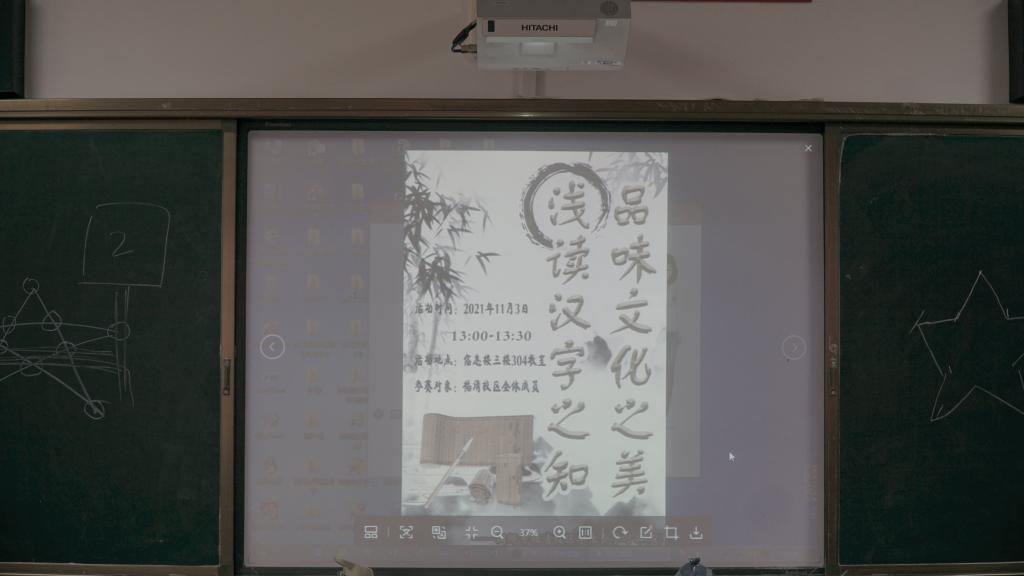 HITACHI
2
品味文化之美
浅读汉字之知
活动时间：2021年11月3日
13:00-13:30
活动地点：笃志楼三楼304教室
参赛对象：福清校区全体成员
37%